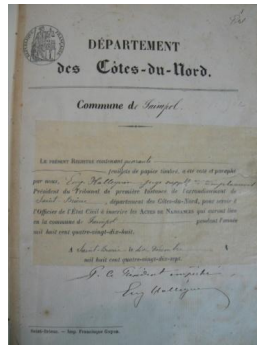 DÉPARTEMENT
des Côtes-du-Nord.
Commune de Paimpol
LE présent REGISTRE contenant quarante
feuillets de papier timbré, a été coté et paraphé
par nous,
Président du Tribunal de première Instance de l'arrondissement de
Saint-Brieuc, département des Côtes-du-Nord, pour servir à
l'Officier de l'État Civil à inscrire les ACTES DE NAISSANCE qui auront lieu
en la commune de Paimpol pendant l'année
mil huit cent quatre-vingt-dix-huit.
A Saint-Brieuc le dix
mil huit cent quatre-vingt-dix-sept.
P. le Président empêché
Saint-Brieuc. — Imp. Francisque Guyon.